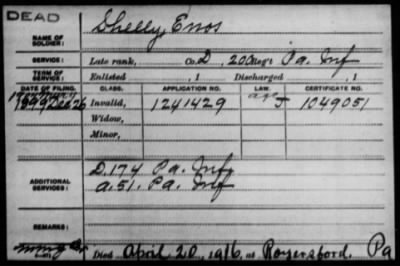 DEAD
NAME OF SOLDIER: Shelly, Enos
SERVICE: Late rank, Co. D, 200 Reg't Pa. Inf
TERM OF SERVICE: Enlisted , 1 Discharged , 1
DATE OF FILING. CLASS. APPLICATION NO. LAW. CERTIFICATE NO.
1899 Dec 26 Invalid, 1241429 J 1049051
Widow,
Minor,
ADDITIONAL SERVICES: D. 174 Pa. Inf
A. 51. Pa. Inf
REMARKS:
Died April 20, 1916, at Royersford, Pa